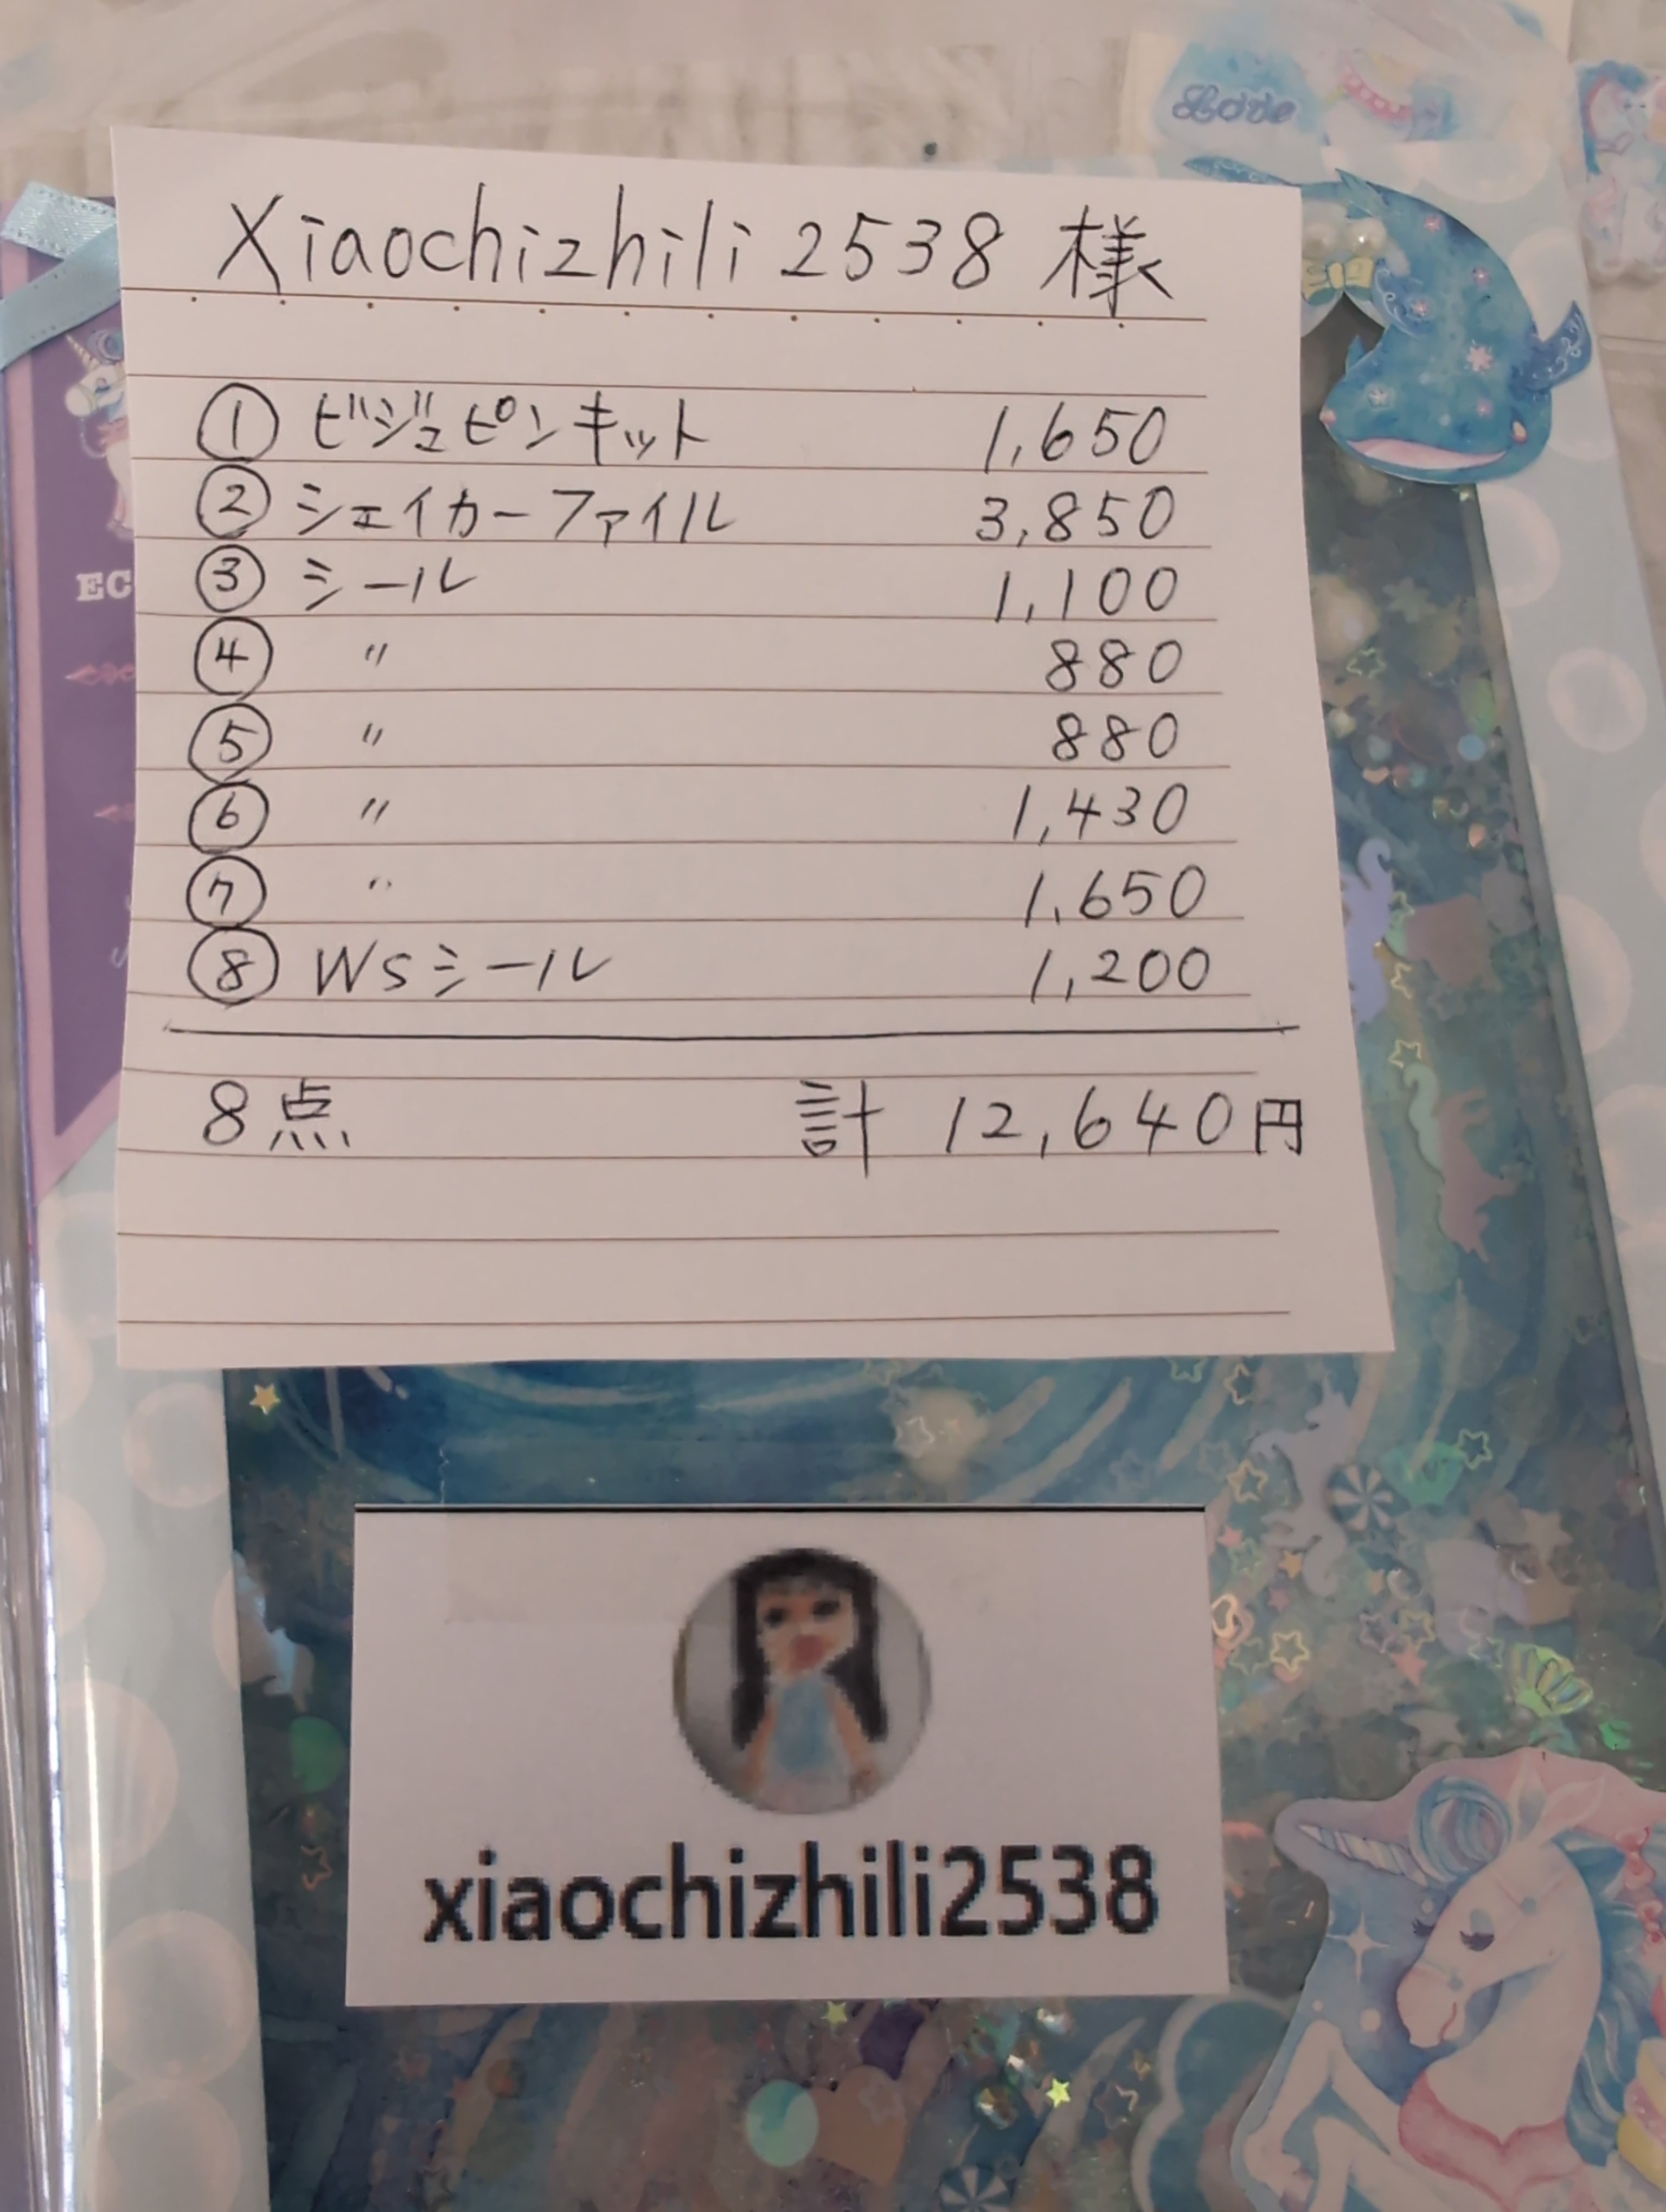 Love
Xiaochizhili 2538 様
① ビジュピンキット 1,650
② シェイカーファイル 3,850
③ シール 1,100
④ 〃 880
⑤ 〃 880
⑥ 〃 1,430
⑦ 〃 1,650
⑧ Wsシール 1,200
8点 計 12,640円
EC
xiaochizhili2538